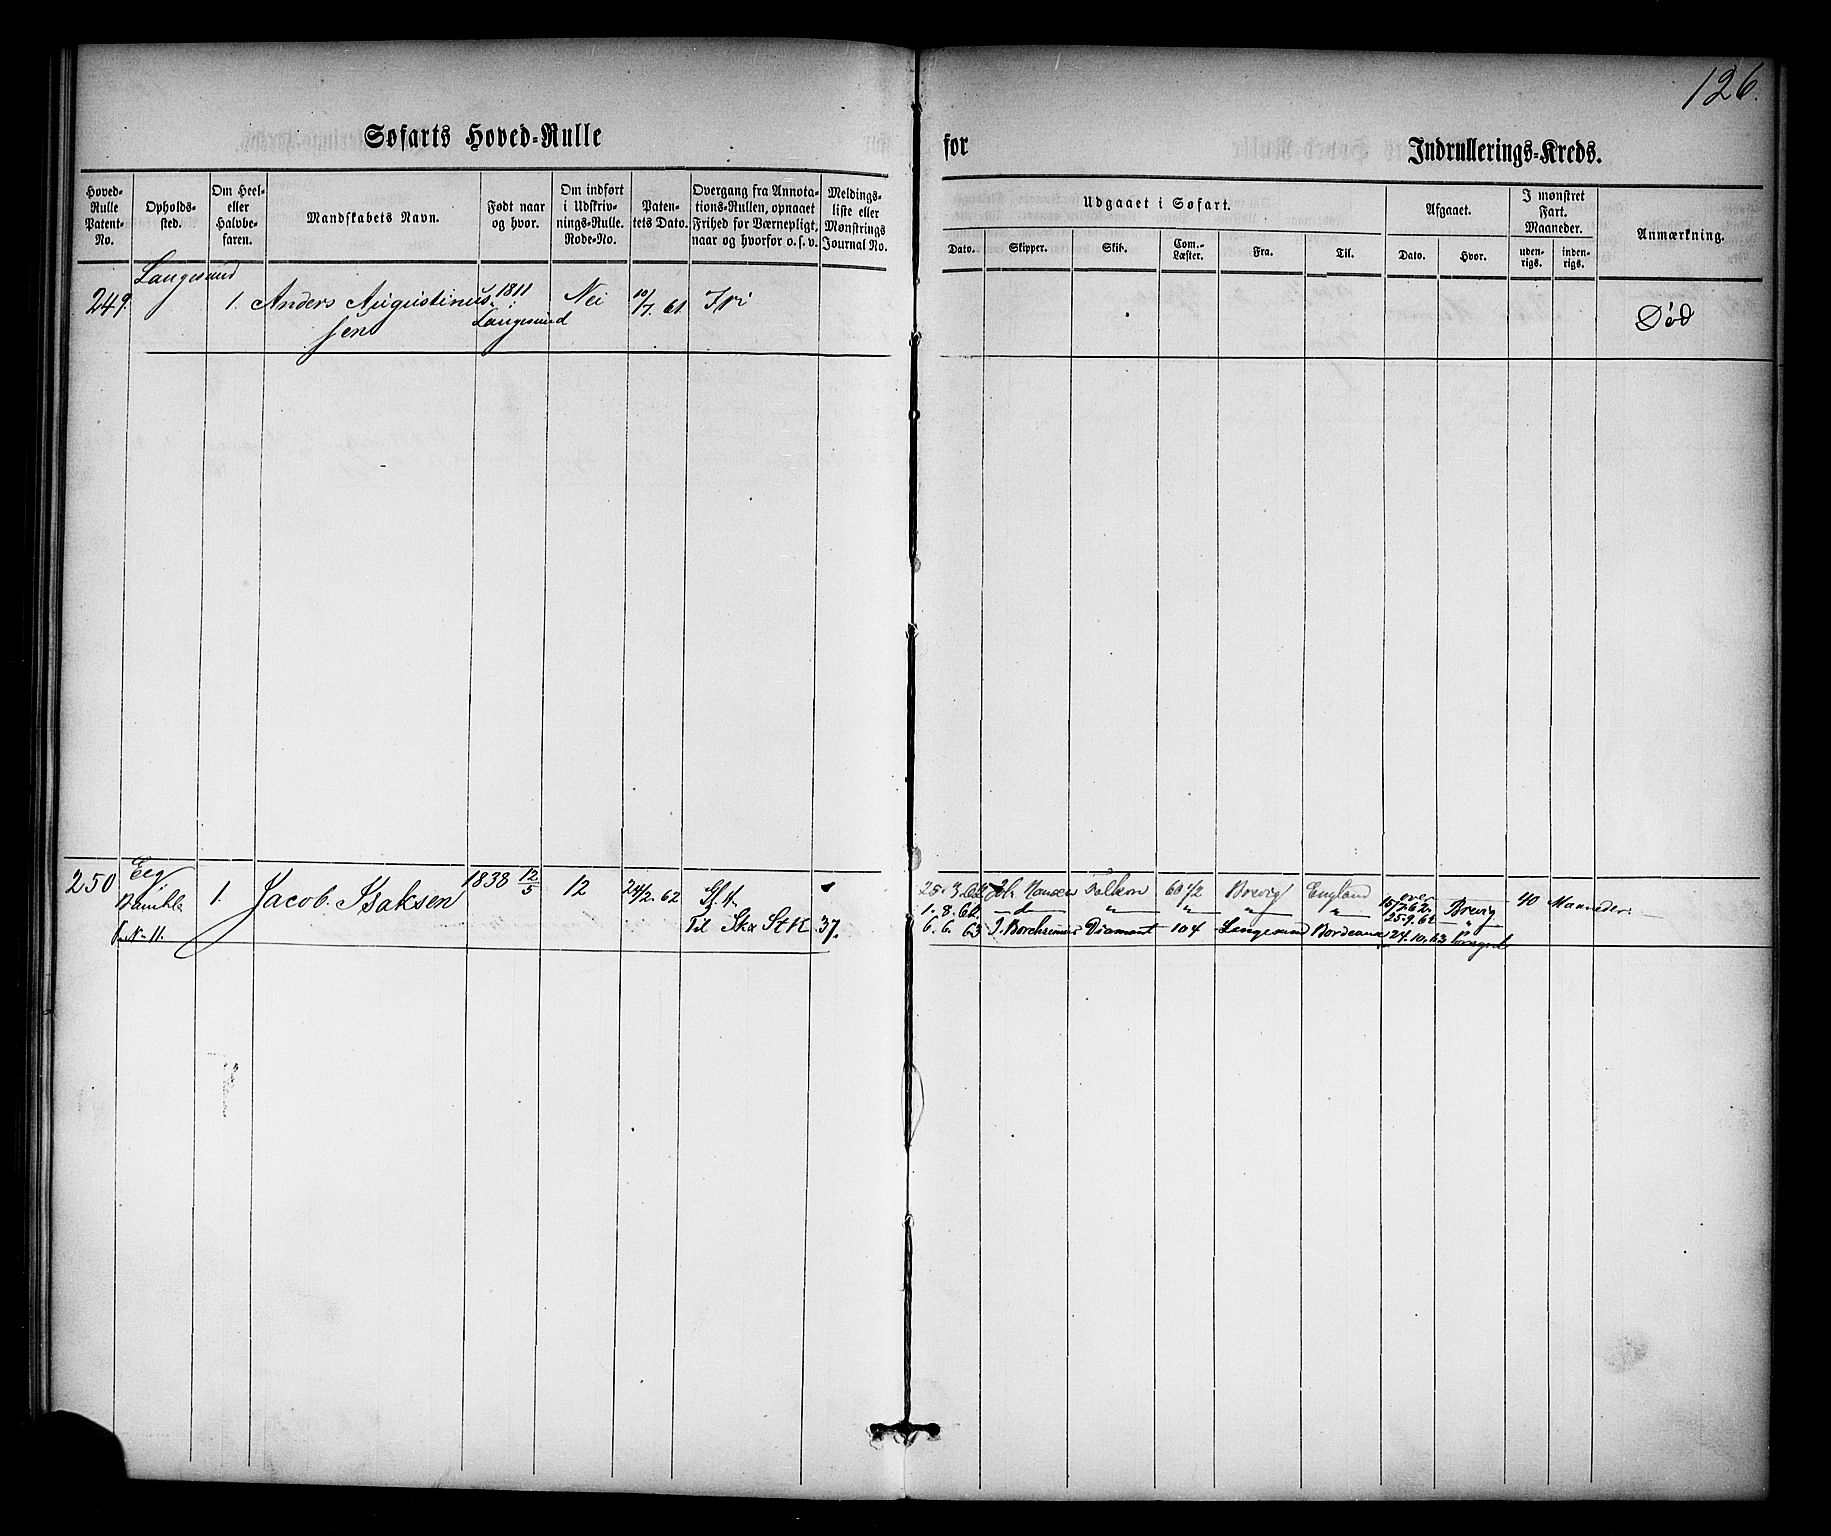 126.
Søfarts Hoved-Rulle for Indrullerings-Kreds.
Hoved-Rulle Patent-No.
Opholds-sted.
Om Heel- eller Halvbe-faren.
Mandskabets Navn.
Født naar og hvor.
Om indført i Udskriv-nings-Rulle. Rode-No.
Paten-tets Dato.
Overgang fra Annota-tions-Rullen, opnaaet Frihed for Værnepligt, naar og hvorfor o. s. v.
Meldings-liste eller Mønstrings Journal No.
Udgaaet i Søfart.
Dato. Skipper. Skib. Com.-Læster. Fra. Til.
Afgaaet.
Dato. Hvor.
I mønstret Fart. Maaneder.
uden-rigs. inden-rigs.
Anmærkning.
Langesund
249. 1. Anders Augustinus 1811 Nei 10/7 61 Fri Død
sen Langesund
Eeg
250 Bamble 1. Jacob Isaksen 1838 12/5 12 24/2. 62
No 11. Til 37.
25. 3. 62 Joh. Hansen Falken 60 1/2 Brevig England 15/7 62 40 Maaneder
1. 8. 62 — d — " " " " 25. 9. 62 Brevig
6. 6. 63 J. Borchsenius Diamant 104 Langesund Bordeaux 24. 10. 63